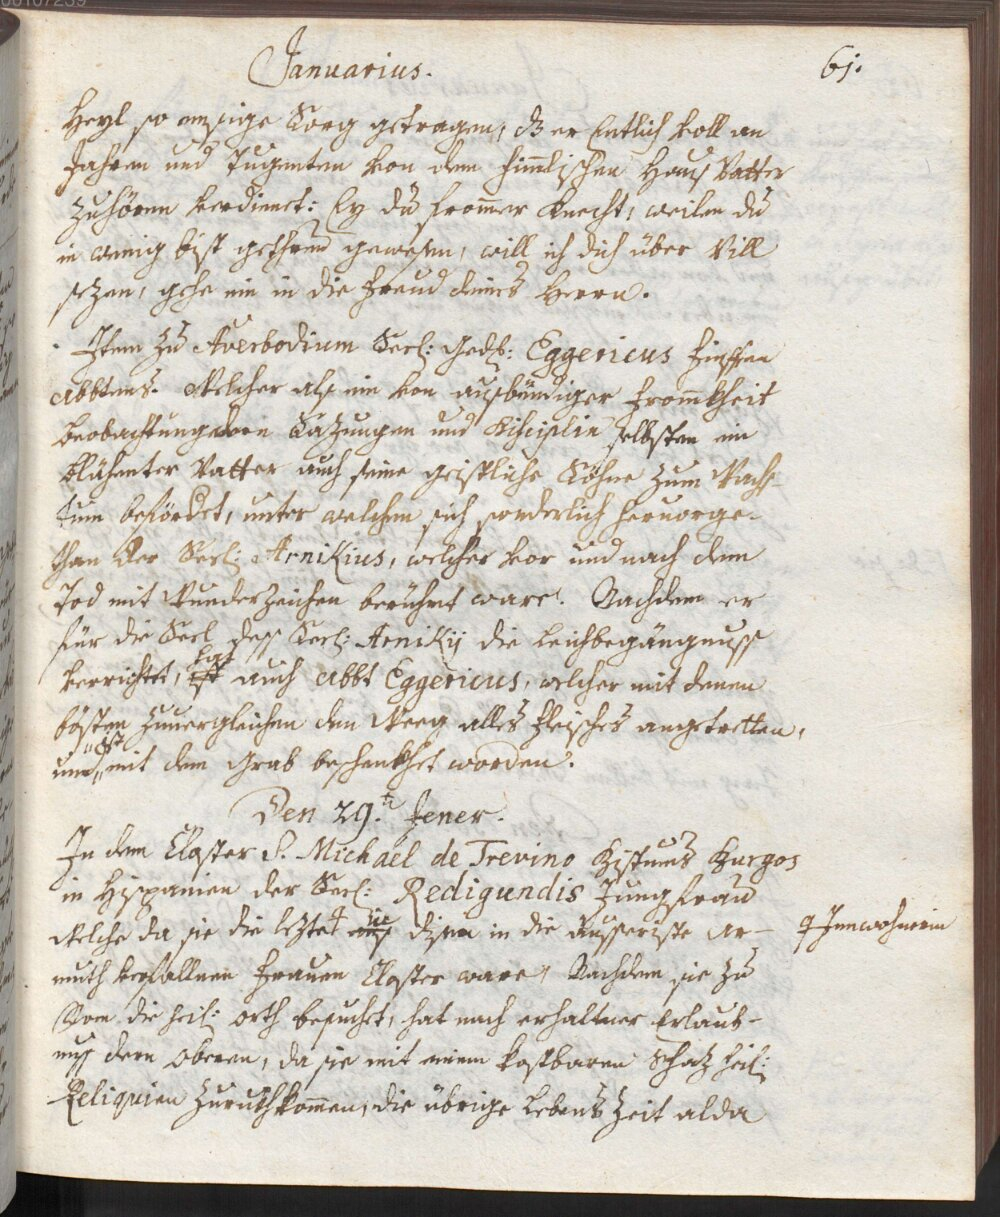 00107239
Januarius.
61.
Heyl so embsige Sorg getragen, dz er Entlich voll an
Jahren und Tugenten von dem himlischen Haus Vatter
zuhören verdienet: Ey du fromer Knecht, weilen du
in wenig bist getreü gewesen, will ich dich über Vill
sezen, gehe ein in die Freud deines Herrn.
Item zu Averbodium Seel: Gedh: Eggericus
Abbtens. Welcher als ein von ausbündiger Fromkheit
beobachtung deren Sazungen und Disciplin selbsten ein
blühenter Vatter auch seine geistliche Söhne zum Wachs
tum befördet, unter welchen sich sonderlich hervorge-
than der Seel: Arnikius, welcher vor und nach dem
Tod mit Wunderzeichen berühmt ware. Nachdem er
für die Seel dess Seel: Arnikij die Leichbegängnuss
verrichtet, hat auch Abbt Eggericus, welcher mit denen
bösten zuvergleichen den Weeg alles Fleisches angetretten,
und ist mit dem Grab beschenkhet worden.
Den 29.t Jener.
In dem Closter S. Michael de Trevino Bistums Burgos
in Hispanien der Seel: Redigundis Jungfrau
Welche da sie die lezte in disen in die äusseriste Ar-
muth verfallnen Frauen Closter ware, Nachdem sie zu
Rom die heil: Orth besuchet, hat nach erhaltner Erlaub-
nus deren Oberen, da sie mit einem kostbaren Schatz heil:
Reliquien zurukhkommen, die übrige Lebens Zeit alda
Innwohnerin